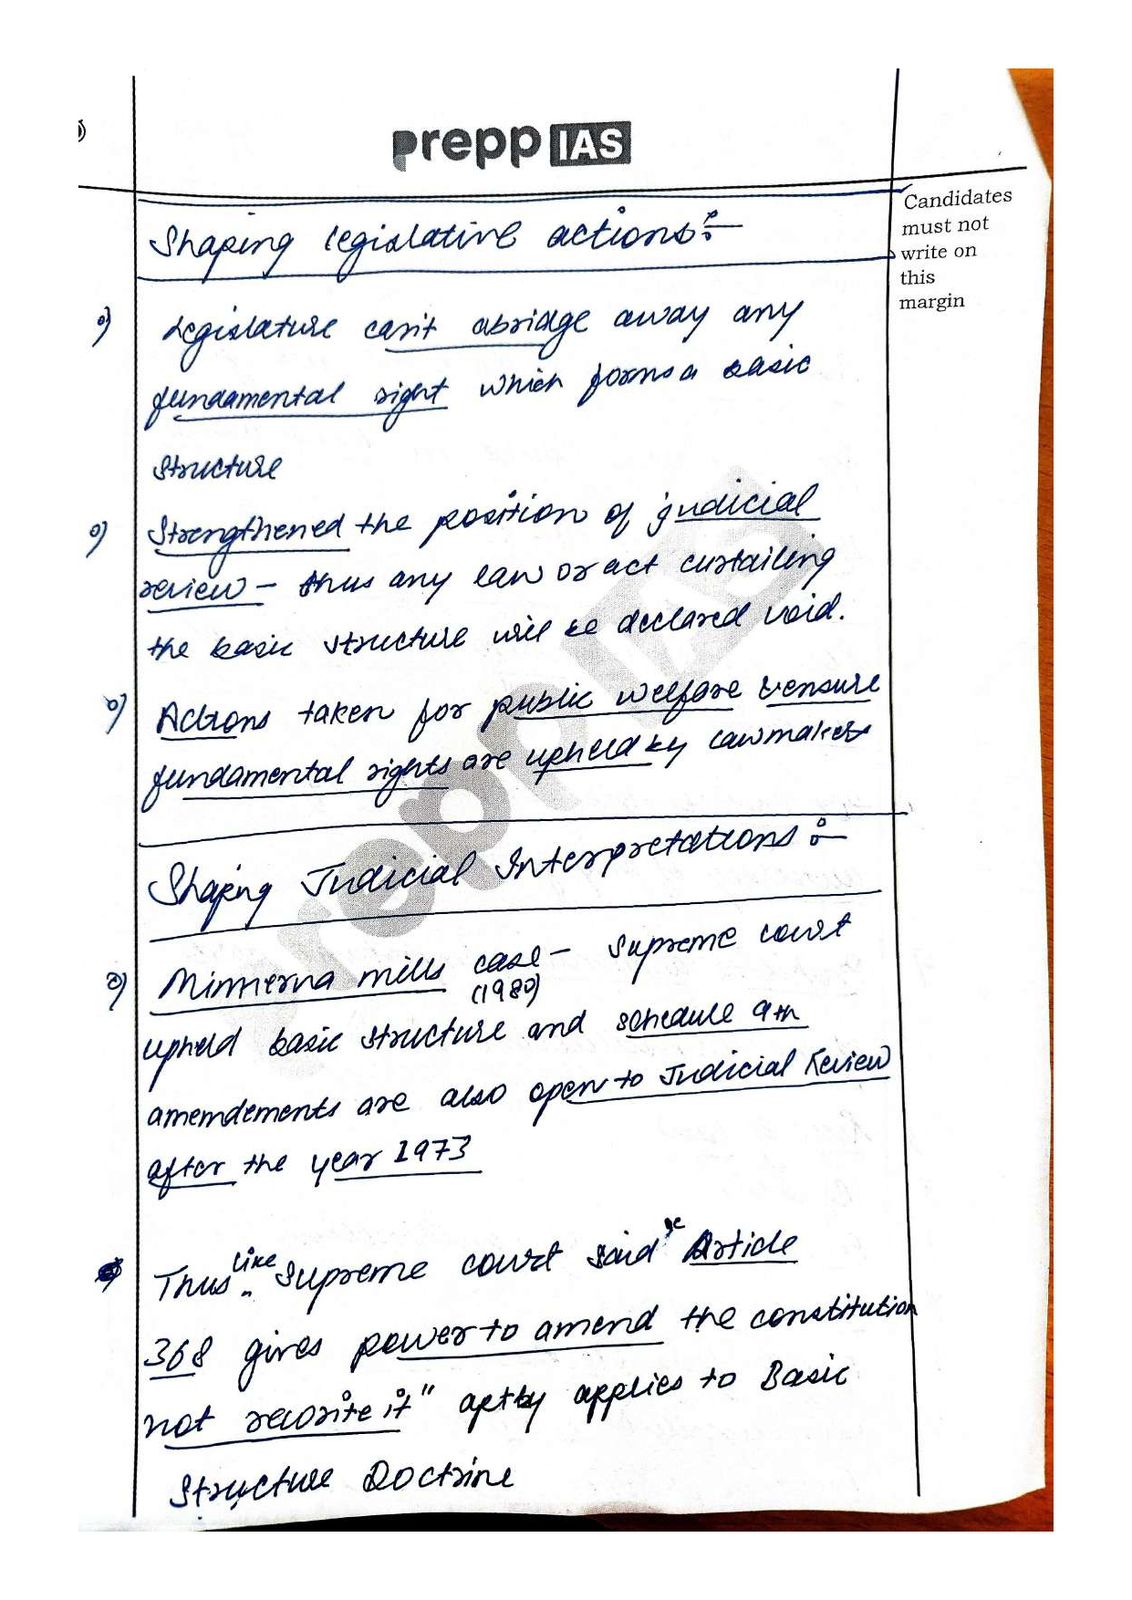 prepp IAS
Candidates
must not
write on
this
margin
Shaping legislative actions:-
Legislature can't abridge away any
fundamental right which forms a basic
structure
Strengthened the position of judicial
review - thus any law or act curtailing
the basic structure will be declared void.
Actions taken for public welfare & ensure
fundamental rights are upheld by lawmakers
Shaping Judicial Interpretations:-
Minnerva mills case - Supreme court
(1980)
upheld basic structure and schedule 9th
amemdements are also open to Judicial Review
after the year 1973
Thus like Supreme court said "Article
368 gives power to amend the constitution
not rewrite it" aptly applies to Basic
Structure Doctrine
prepp IAS